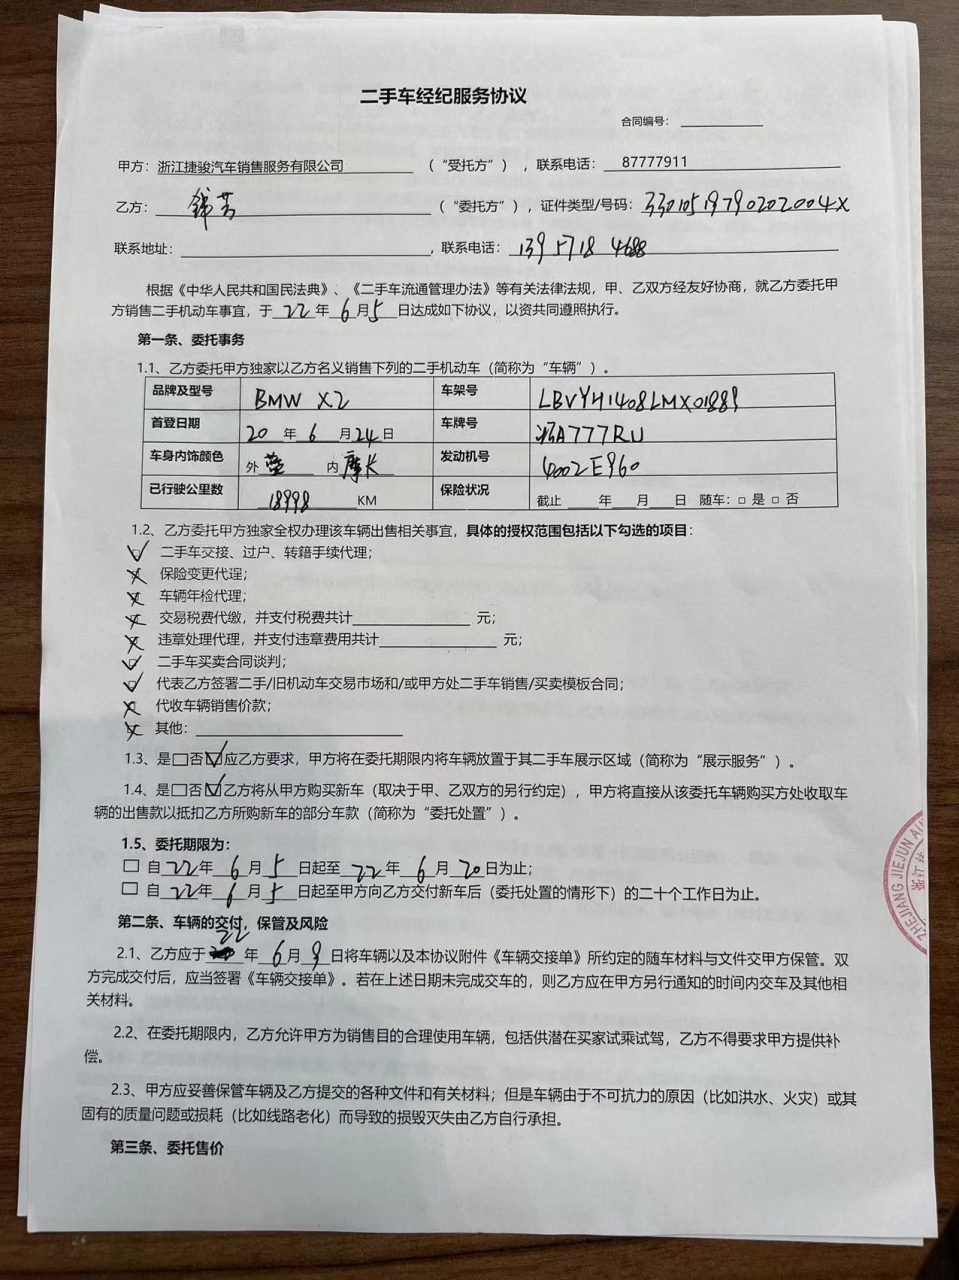 二手车经纪服务协议
合同编号：
甲方：浙江捷骏汽车销售服务有限公司 （“受托方”），联系电话： 87777911
乙方： （“委托方”），证件类型/号码：33010519790202004X
联系地址： ，联系电话：1395718 4688
根据《中华人民共和国民法典》、《二手车流通管理办法》等有关法律法规，甲、乙双方经友好协商，就乙方委托甲
方销售二手机动车事宜，于 22 年 6 月 5 日达成如下协议，以资共同遵照执行。
第一条、委托事务
1.1、乙方委托甲方独家以乙方名义销售下列的二手机动车（简称为“车辆”）。
品牌及型号 BMW X2 车架号 LBVYH1408LMX01889
首登日期 20 年 6 月 24 日 车牌号 浙A777RU
车身内饰颜色 外 蓝 内 摩卡 发动机号 4002E960
已行驶公里数 18998 KM 保险状况 截止 年 月 日 随车：□ 是 □ 否
1.2、乙方委托甲方独家全权办理该车辆出售相关事宜，具体的授权范围包括以下勾选的项目：
二手车交接、过户、转籍手续代理；
保险变更代理；
车辆年检代理；
交易税费代缴，并支付税费共计 元；
违章处理代理，并支付违章费用共计 元；
二手车买卖合同谈判；
代表乙方签署二手/旧机动车交易市场和/或甲方处二手车销售/买卖模板合同；
代收车辆销售价款；
其他：
1.3、是□否☑应乙方要求，甲方将在委托期限内将车辆放置于其二手车展示区域（简称为“展示服务”）。
1.4、是□否☑乙方将从甲方购买新车（取决于甲、乙双方的另行约定），甲方将直接从该委托车辆购买方处收取车
辆的出售款以抵扣乙方所购新车的部分车款（简称为“委托处置”）。
1.5、委托期限为：
□ 自 22 年 6 月 5 日起至 22 年 6 月 20 日为止；
□ 自 22 年 6 月 5 日起至甲方向乙方交付新车后（委托处置的情形下）的二十个工作日为止。
第二条、车辆的交付，保管及风险
2.1、乙方应于 22 年 6 月 9 日将车辆以及本协议附件《车辆交接单》所约定的随车材料与文件交甲方保管。双
方完成交付后，应当签署《车辆交接单》。若在上述日期未完成交车的，则乙方应在甲方另行通知的时间内交车及其他相
关材料。
2.2、在委托期限内，乙方允许甲方为销售目的合理使用车辆，包括供潜在买家试乘试驾，乙方不得要求甲方提供补
偿。
2.3、甲方应妥善保管车辆及乙方提交的各种文件和有关材料；但是车辆由于不可抗力的原因（比如洪水、火灾）或其
固有的质量问题或损耗（比如线路老化）而导致的损毁灭失由乙方自行承担。
第三条、委托售价
ZHEJIANG JIEJUN AU
浙江